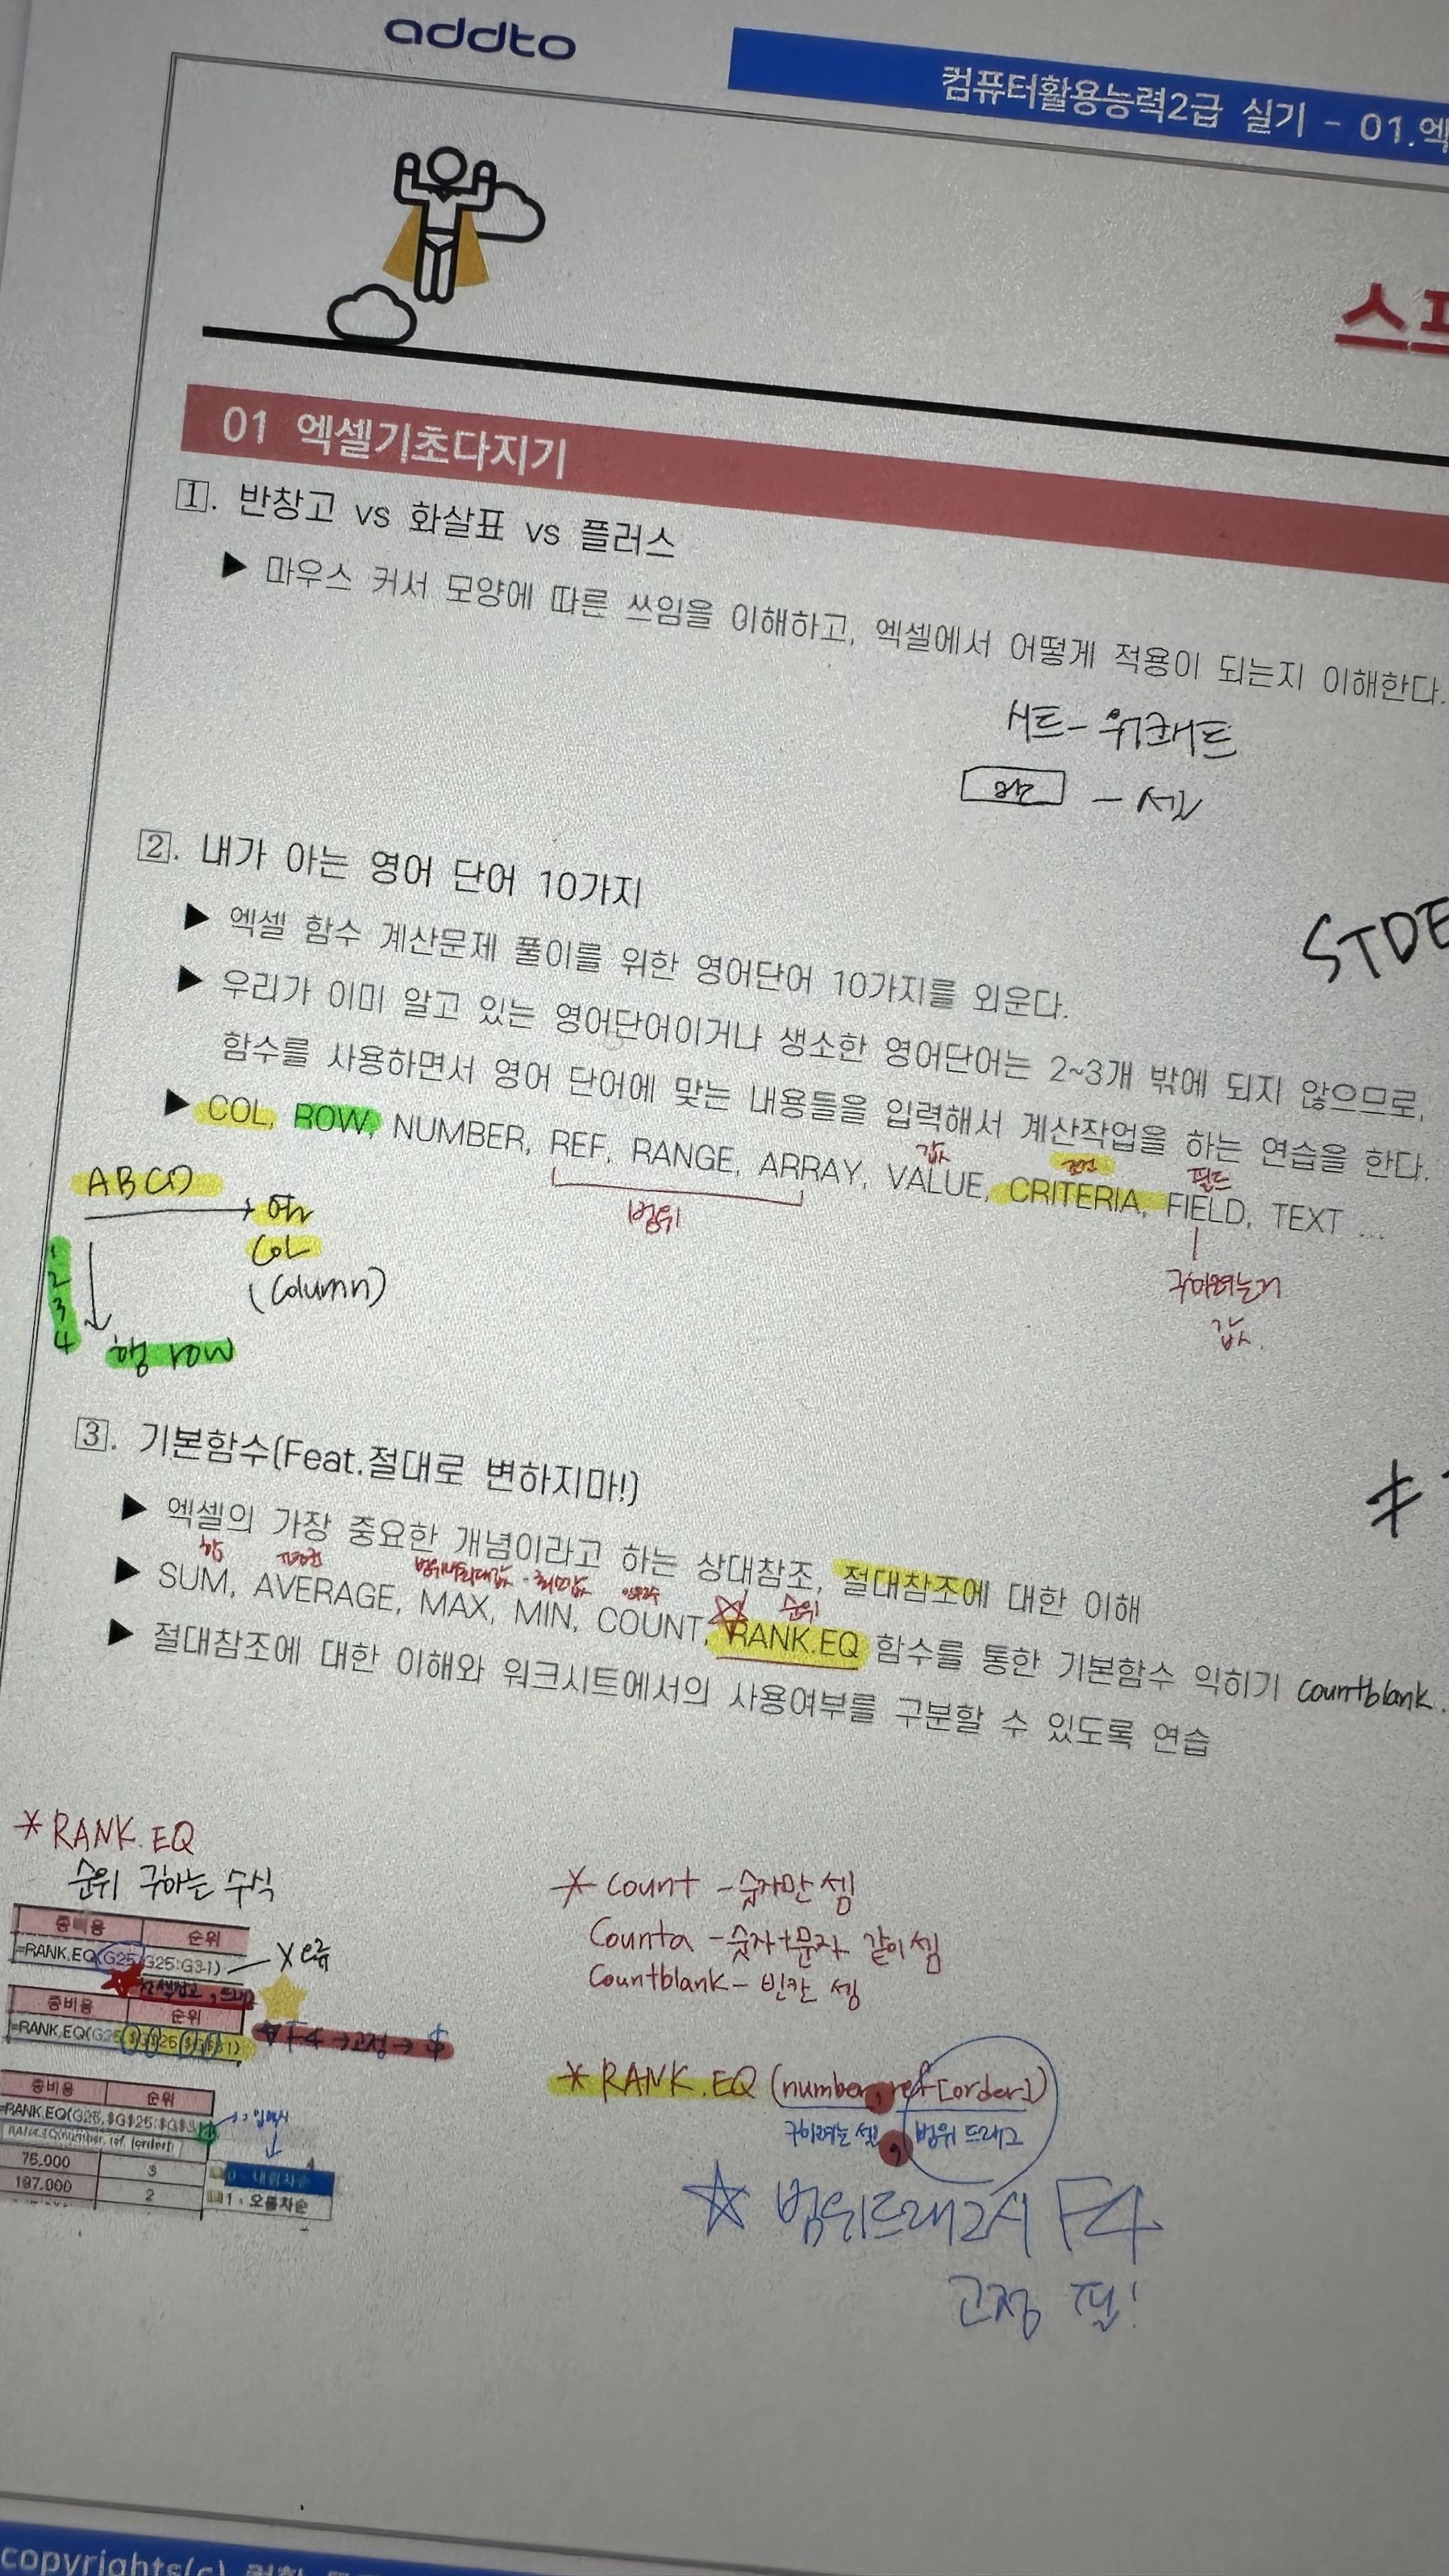 addto
컴퓨터활용능력2급 실기 - 01.엑
스프
01 엑셀기초다지기
1. 반창고 vs 화살표 vs 플러스
▶ 마우스 커서 모양에 따른 쓰임을 이해하고, 엑셀에서 어떻게 적용이 되는지 이해한다.
시트-워크시트
- 셀
2. 내가 아는 영어 단어 10가지
STDE
▶ 엑셀 함수 계산문제 풀이를 위한 영어단어 10가지를 외운다.
▶ 우리가 이미 알고 있는 영어단어이거나 생소한 영어단어는 2~3개 밖에 되지 않으므로,
함수를 사용하면서 영어 단어에 맞는 내용들을 입력해서 계산작업을 하는 연습을 한다.
값 조건 필드
▶ COL, ROW, NUMBER, REF, RANGE, ARRAY, VALUE, CRITERIA, FIELD, TEXT ...
범위
구하려는
값.
ABCD
열
COL
(column)
1
2
3
4
행 row
3. 기본함수(Feat.절대로 변하지마!)
≠
▶ 엑셀의 가장 중요한 개념이라고 하는 상대참조, 절대참조에 대한 이해
합 평균 범위내최대값 · 최소값 순위
▶ SUM, AVERAGE, MAX, MIN, COUNT, RANK.EQ 함수를 통한 기본함수 익히기 countblank.
▶ 절대참조에 대한 이해와 워크시트에서의 사용여부를 구분할 수 있도록 연습
* RANK.EQ
순위 구하는 수식
중비용 순위
=RANK.EQ(G25,G25:G31) X 오류
중비용 순위
=RANK.EQ(G25,$G$25:$G$31) F4 → 고정 → $
중비용 순위
=RANK.EQ(G25,$G$25:$G$31
RANK.EQ(number, ref, [order])
76,000 3
197,000 2
0 - 내림차순
1 - 오름차순
* count - 숫자만 셈
Counta - 숫자+문자 같이 셈
Countblank - 빈칸 셈
* RANK.EQ (number, ref[order])
구하려는 셀, 범위 드래그
☆ 범위드래그시 F4
고정 필!
copyrights(c) 컴활